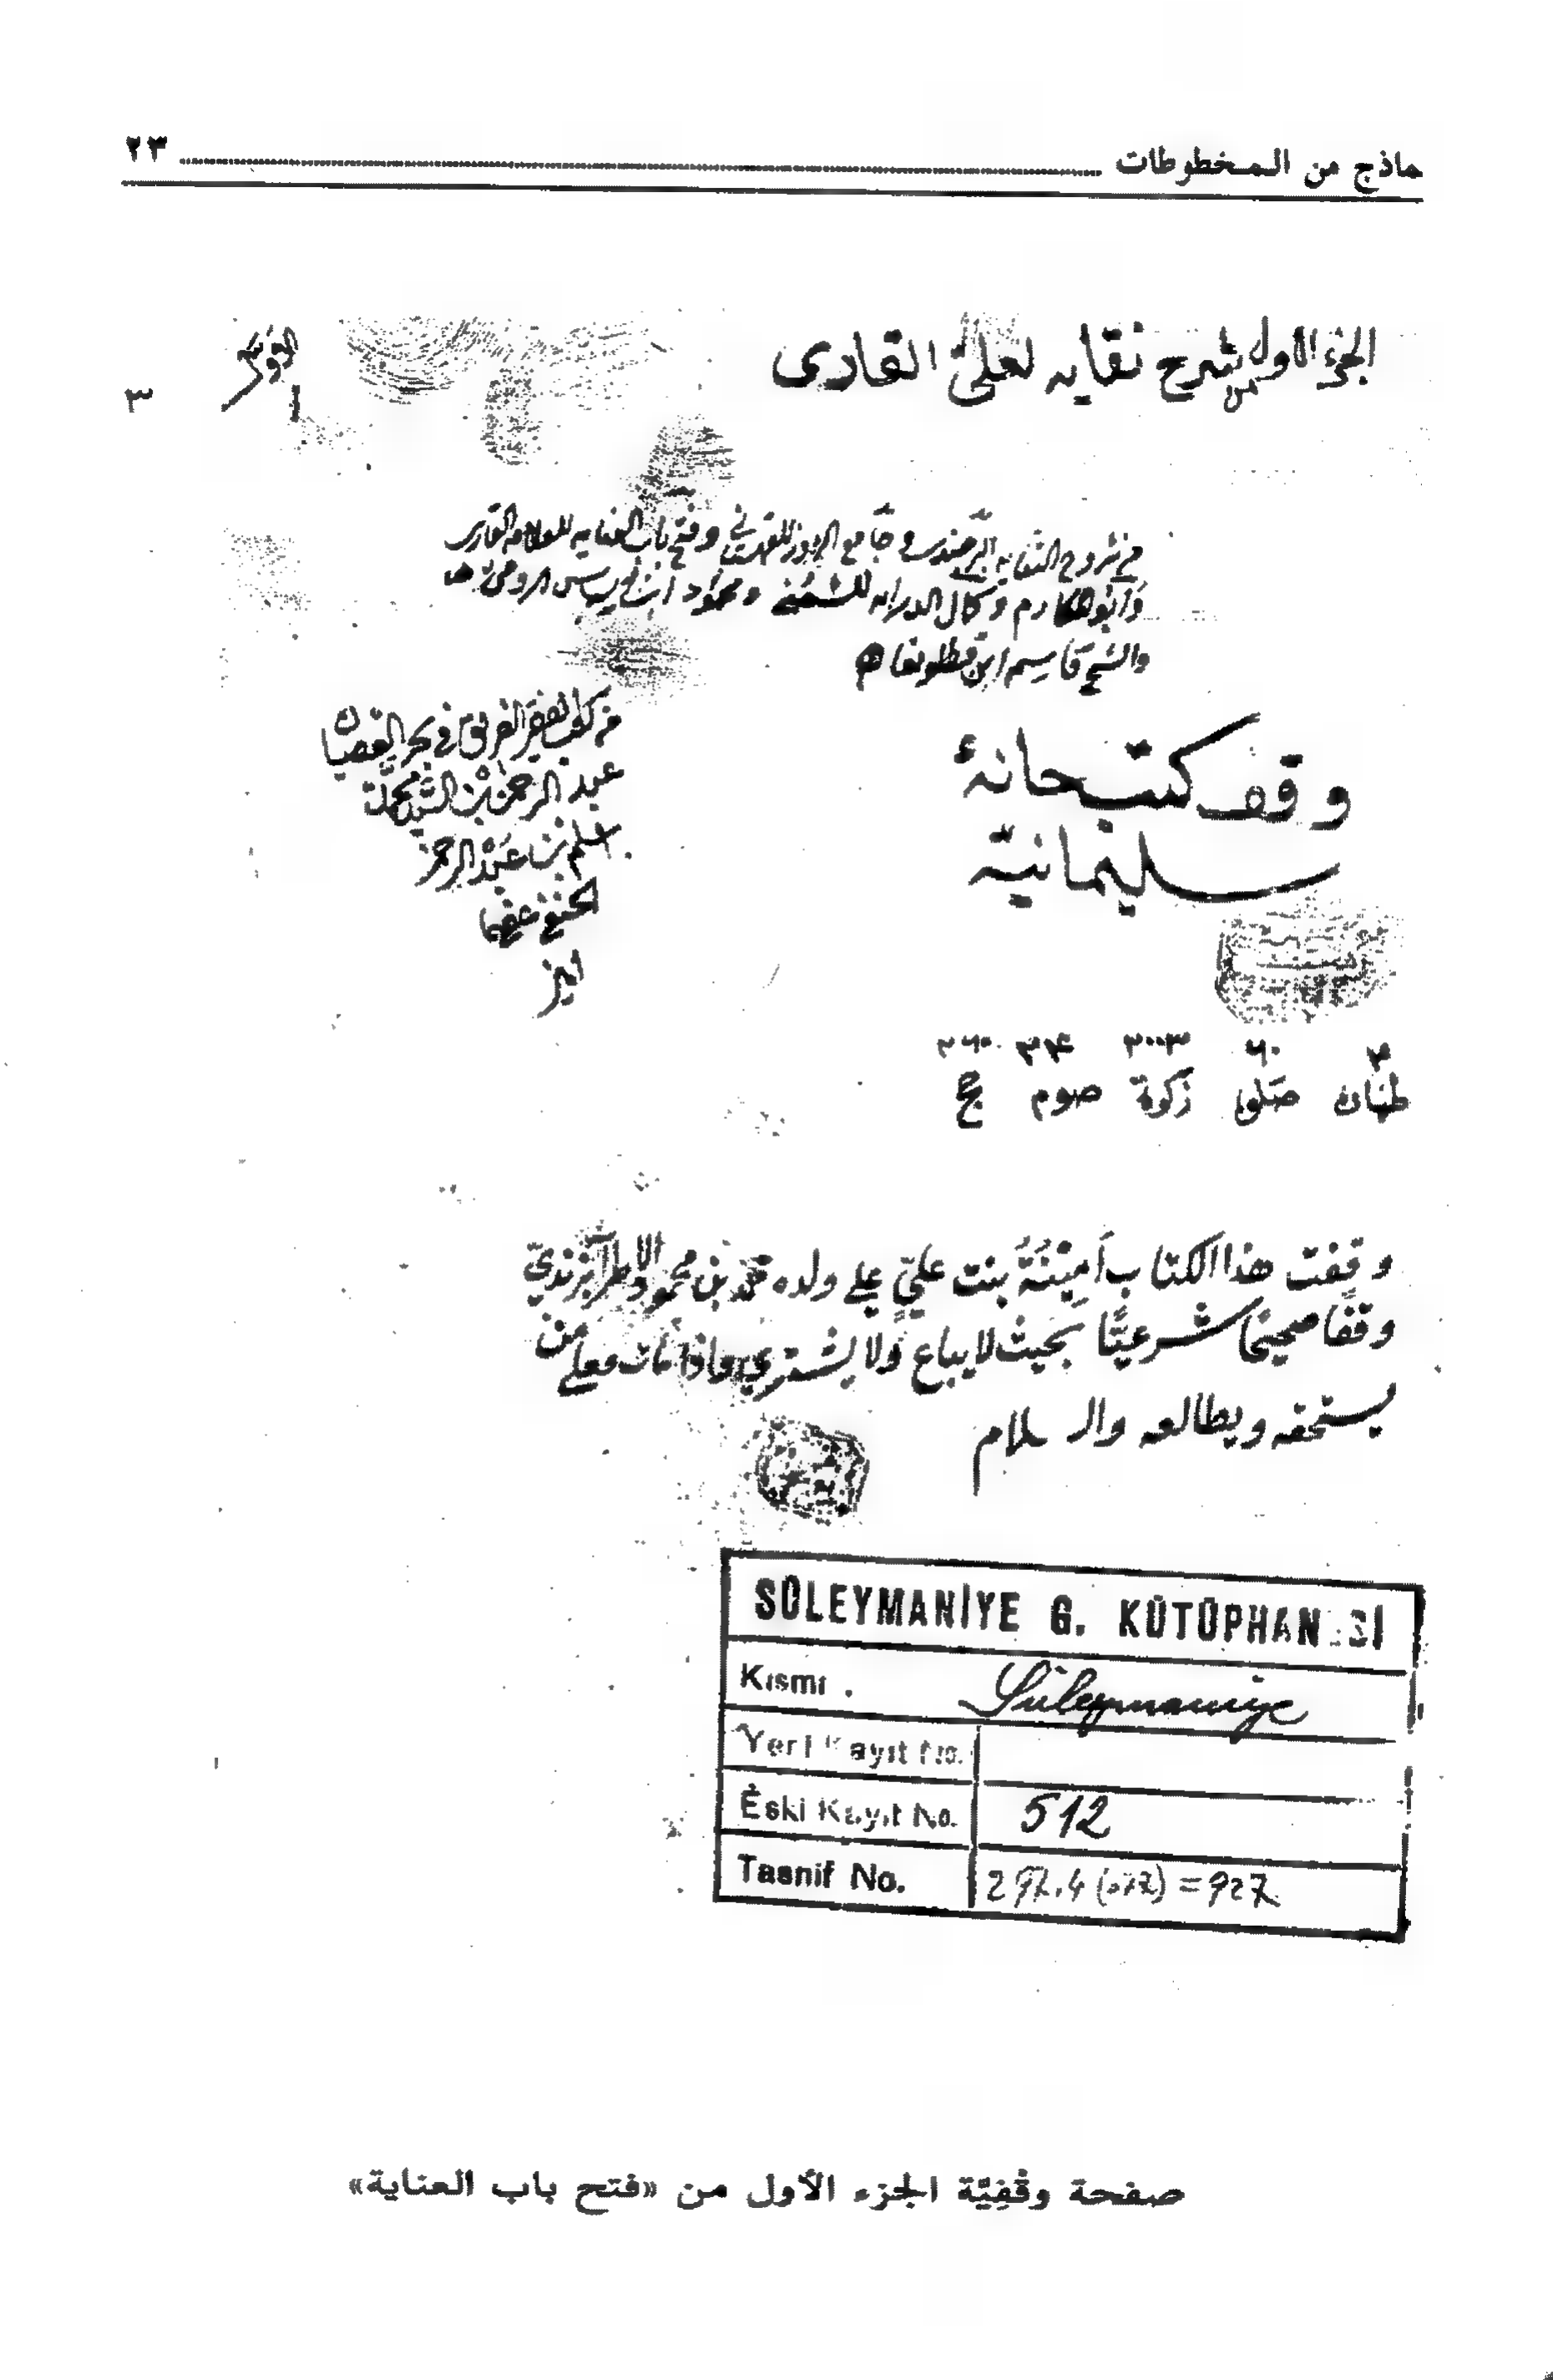 ماذج من المخطوطات ٢٣
الجزء الاول من شرح نقايه لعلى القارى
٣
من شروح النقايه البرجندي و جامع الرموز للقهستاني و فتح باب العنايه للعلامه القارى
وابو المكارم و كمال الدرايه للشمني و محمود ابن الياس الرومى
والشيخ قاسم ابن قطلوبغا
من كتب الفقير الغريق في بحر العصيان
عبد الرحمن بن السيد محمد
اسلم بن عبد الرحمن
الحنفي عفي عنهما
امين
وقف كتبخانۀ
سليمانيه
٦٠ ٣٠٠٣ ٣٤ ٣٦٠
صلوة زكوة صوم حج
وقفت هذا الكتاب اَمِيْنَةُ بنت عليّ على ولده محمد بن محمود الاطرابزنديّ
وقفا صحيحا شرعيّا بحيث لا يباع ولا يشترى واذا مات فعلى من
يستحقه ويطالعه والسلام
SÜLEYMANİYE G. KÜTÜPHANESİ
Kısmı . Süleymaniye
Yeni Kayıt No.
Eski Kayıt No. 512
Tasnif No. 297.4 = 927
صفحة وقْفِيّة الجزء الأول من «فتح باب العناية»